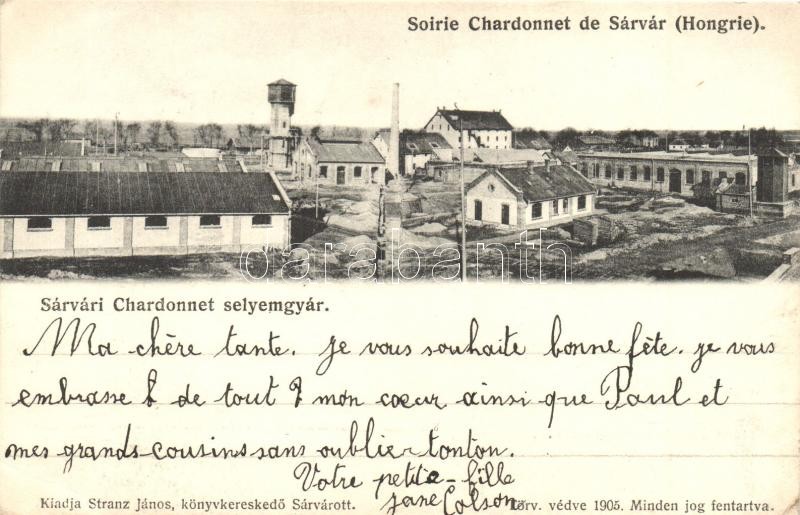 Soirie Chardonnet de Sárvár (Hongrie).
darabanth
Sárvári Chardonnet selyemgyár.
Ma chère tante. je vous souhaite bonne fête. je vous
embrasse b de tout mon cœur ainsi que Paul et
mes grands-cousins sans oublier tonton.
Votre petite-fille
jane Colson
Kiadja Stranz János, könyvkereskedő Sárvárott.
Törv. védve 1905. Minden jog fentartva.